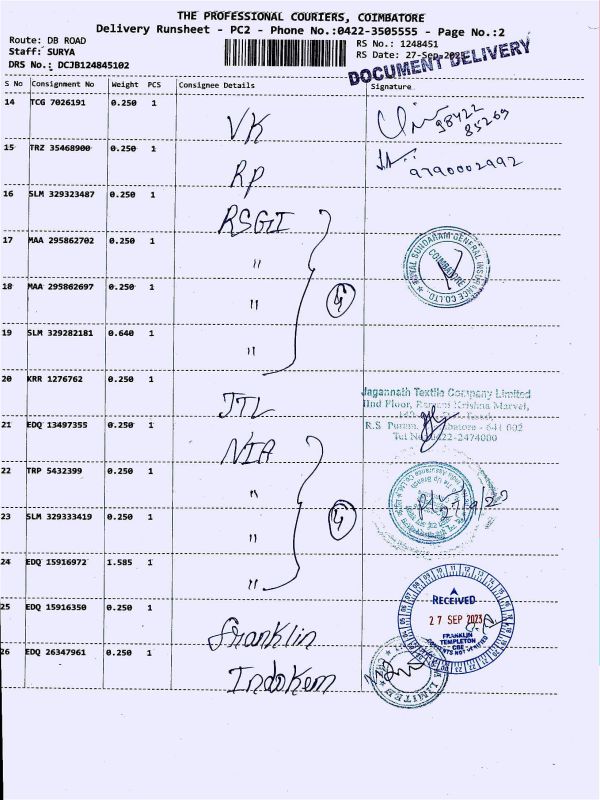 THE PROFESSIONAL COURIERS, COIMBATORE
Delivery Runsheet - PC2 - Phone No.:0422-3505555 - Page No.:2
Route: DB ROAD
Staff: SURYA
DRS No.: DCJB124845102
RS No.: 1248451
RS Date: 27-Sep-2023
DOCUMENT DELIVERY
S No Consignment No Weight PCS Consignee Details Signature
14 TCG 7026191 0.250 1 VK 98422 85269
15 TRZ 35468900 0.250 1 RP 9790002992
16 SLM 329323487 0.250 1 RSGI
17 MAA 295862702 0.250 1 "
18 MAA 295862697 0.250 1 " 4
19 SLM 329282181 0.640 1 "
ROYAL SUNDARAM GENERAL INSURANCE CO. LTD.
COIMBATORE
20 KRR 1276762 0.250 1 JTL
Jagannath Textile Company Limited
IInd Floor, Krishna Marvel,
R.S. Puram, Coimbatore - 641 002
Tel No: 0422-2474000
21 EDQ 13497355 0.250 1 NIA
22 TRP 5432399 0.250 1 "
23 SLM 329333419 0.250 1 " 4
24 EDQ 15916972 1.585 1 "
27/9/23
25 EDQ 15916350 0.250 1 Franklin
RECEIVED
27 SEP 2023
FRANKLIN
TEMPLETON
CBE
CONTENTS NOT VERIFIED
26 EDQ 26347961 0.250 1 Indokem
LIMITED